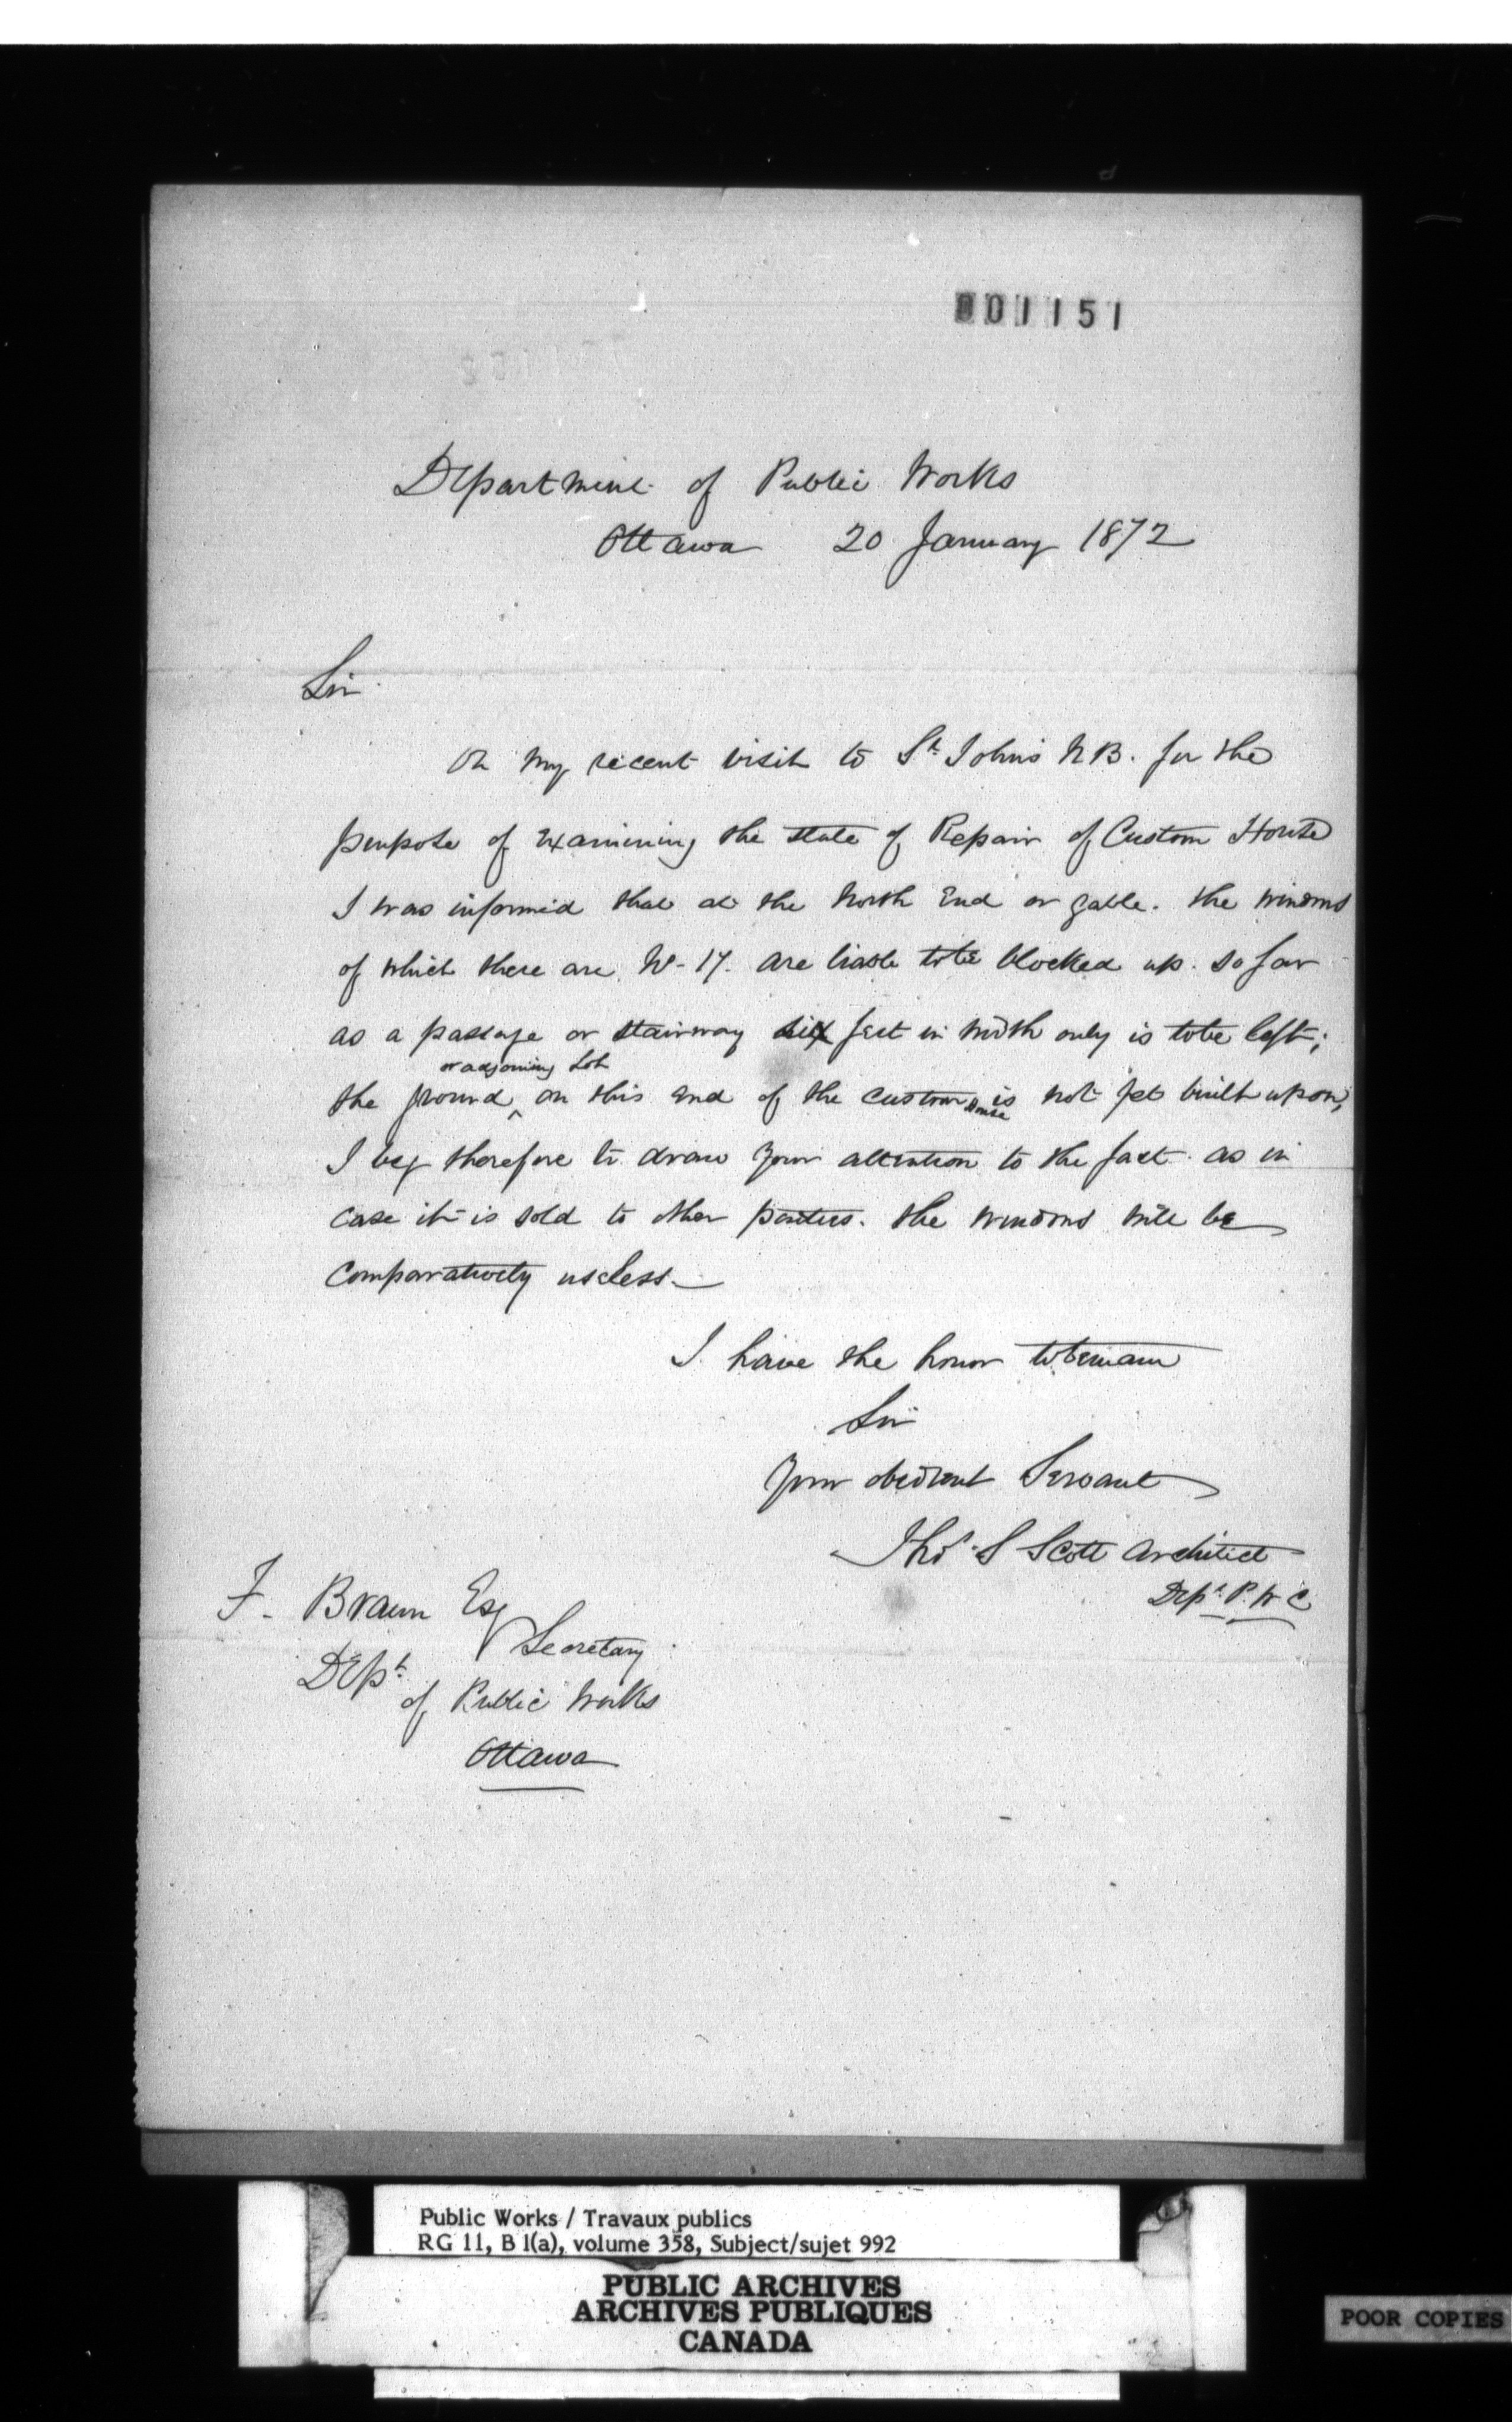 001151
Department of Public Works
Ottawa 20 January 1872
Sir
On my recent visit to St. Johns N B. for the
purpose of examining the state of Repair of Custom House
I was informed that at the North End or gable. the windows
of which there are 17. are liable to be blocked up. so far
as a passage or stairway six feet in width only is to be left;
or adjoining Lot
the ground ^ on this end of the Custom House is not yet built upon,
I beg therefore to draw your attention to the fact. as in
case it is sold to other parties. the windows will be
comparatively useless
I have the honor to remain
Sir
Your obedient Servant
Thos. S Scott Architect
Dept. P. W C
F. Braun Esq
Secretary
Dept.
of Public Works
Ottawa
Public Works / Travaux publics
RG 11, B 1(a), volume 358, Subject/sujet 992
PUBLIC ARCHIVES
ARCHIVES PUBLIQUES
CANADA
POOR COPIES